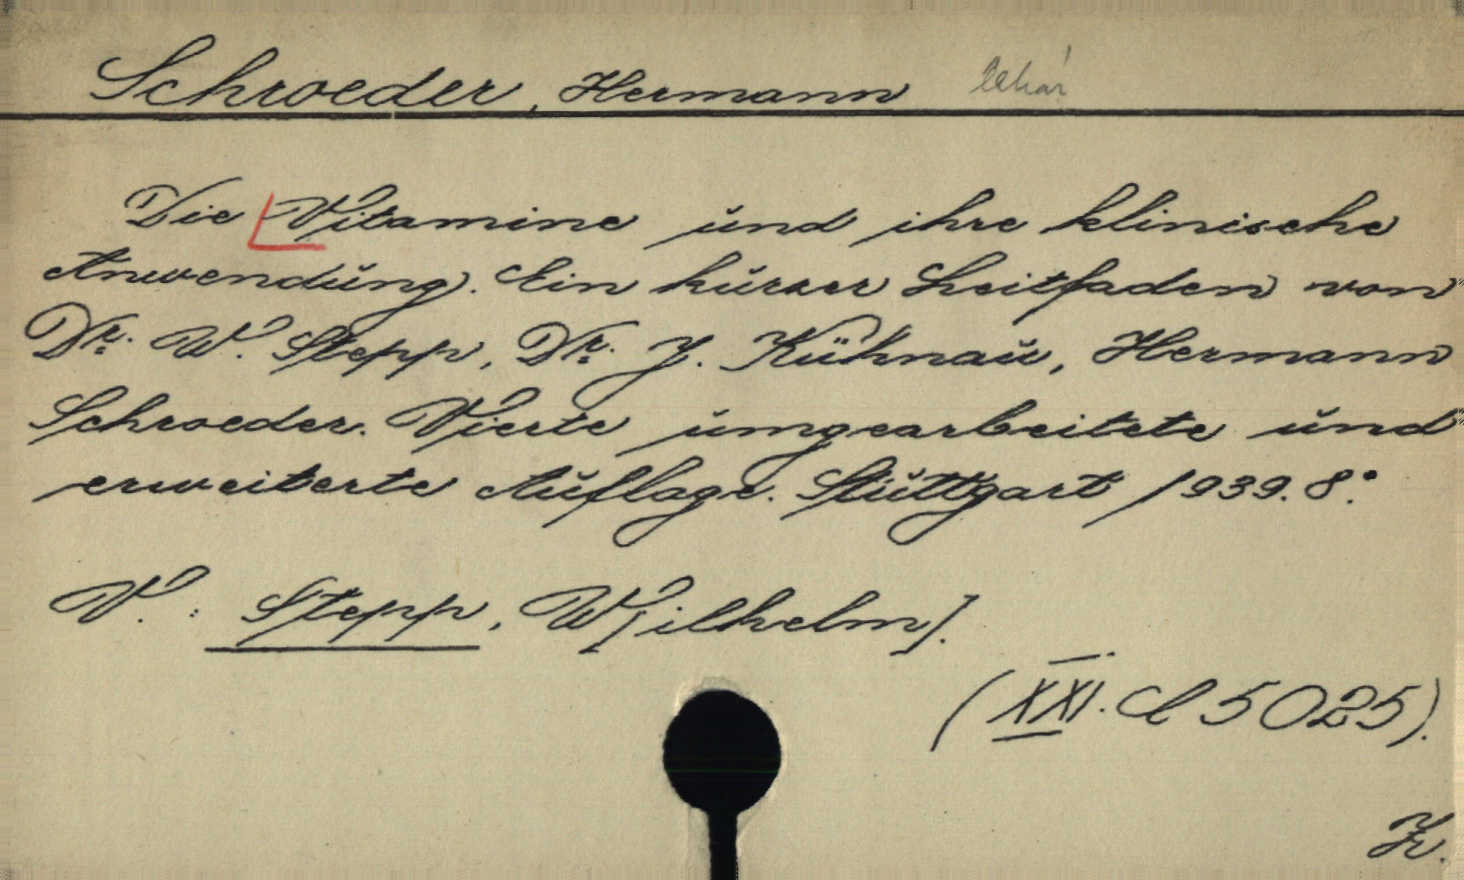 Schroeder, Hermann lékař
Die Vitamine und ihre klinische
Anwendung. Ein kurzer Leitfaden von
Dr. W. Stepp, Dr. J. Kühnau, Hermann
Schroeder. Vierte umgearbeitete und
erweiterte Auflage. Stuttgart 1939. 8°.
V. : Stepp, W[ilhelm].
(XXI. C 5025).